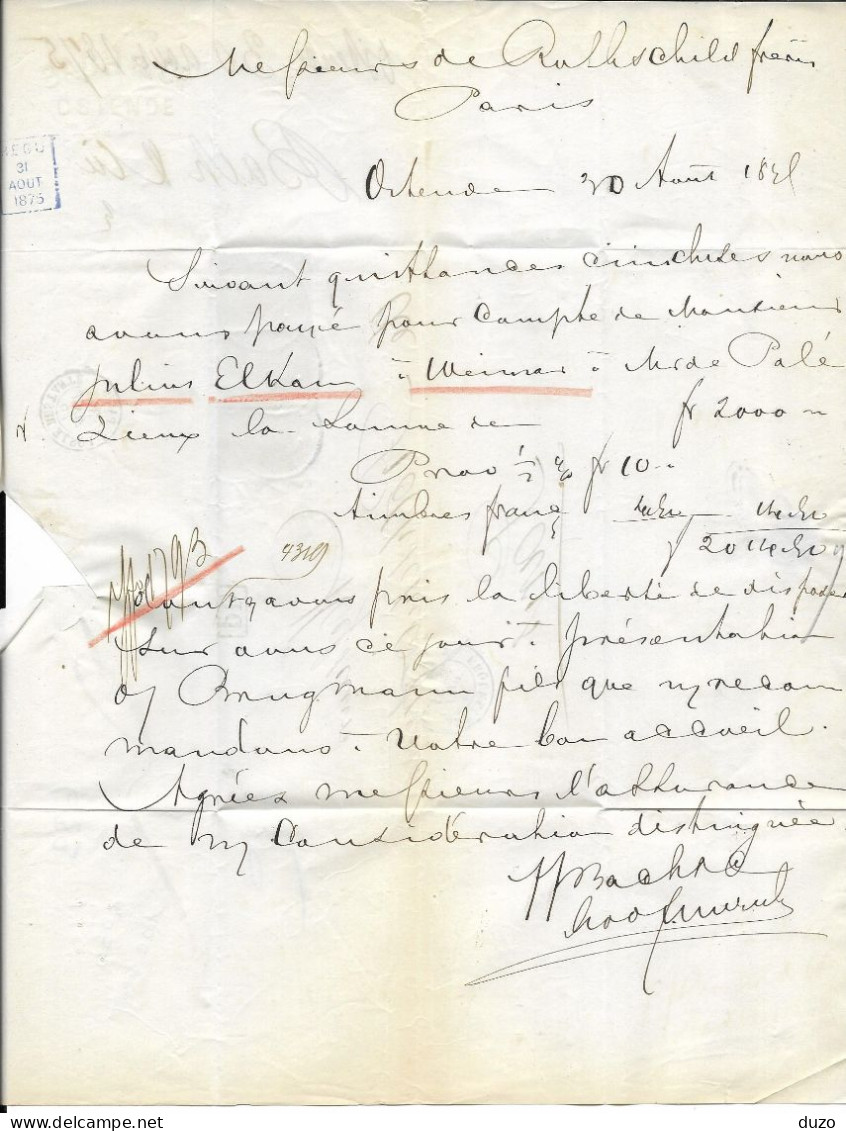 Messieurs de Rothschild frères
Paris
REÇU
31
AOUT
1875
Ostende 30 Août 1875
Suivant quittances incluses nous
avons payé pour compte de Monsieur
Julius Elkan à Weimar à Mr de Palé
zieux la somme de fr 2000 "
Prov ½ % fr 10 "
timbres franç
4319
dont avons pris la liberté de disposer
sur vous ce jour à présentation
o/ Brugmann fils que n/ recom
mandons à votre bon accueil.
Agréez messieurs l'assurance
de n/ considération distinguée.
duzo